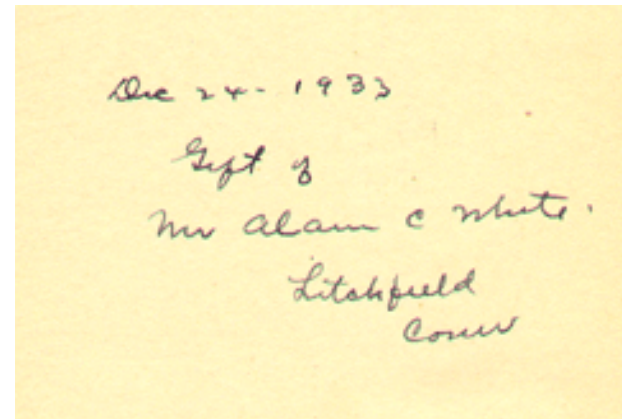 Dec 24 - 1933
Gift of
Mr Alain C White.
Litchfield
Conn